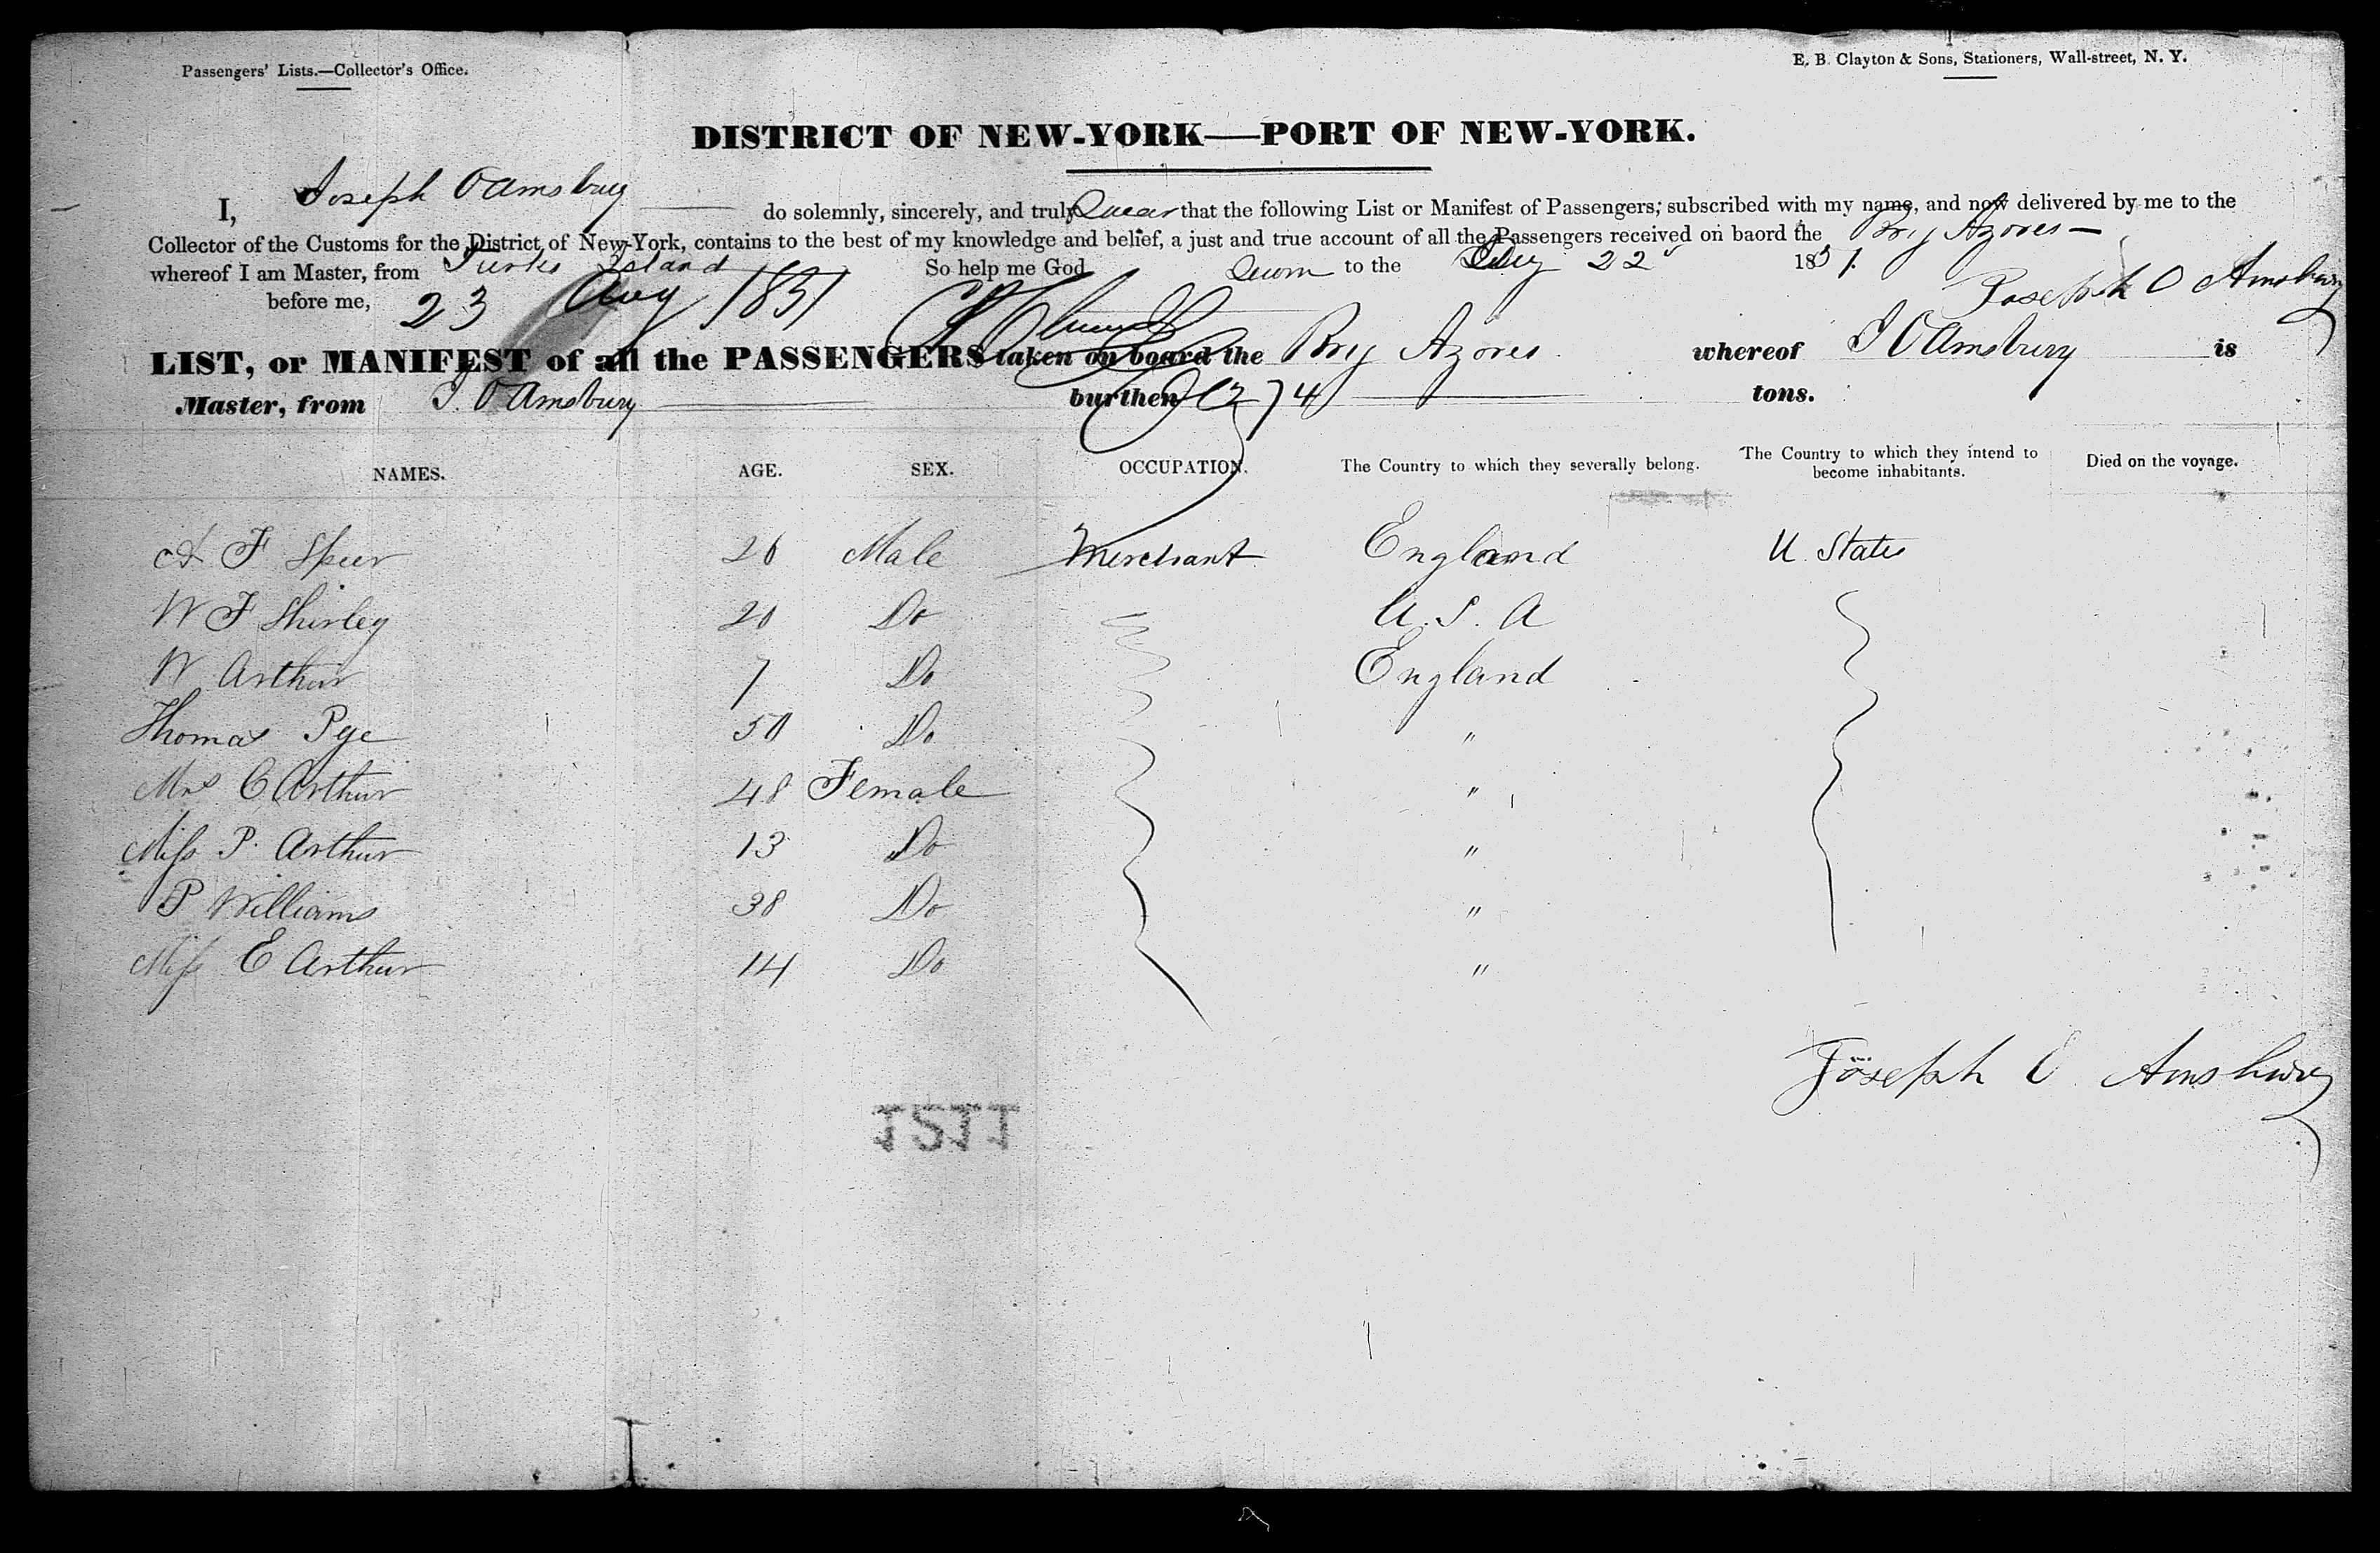 Passengers' Lists.—Collector's Office.
E. B. Clayton & Sons, Stationers, Wall-street, N. Y.
DISTRICT OF NEW-YORK—PORT OF NEW-YORK.
I, Joseph O Amsbury do solemnly, sincerely, and truly Swear that the following List or Manifest of Passengers, subscribed with my name, and now delivered by me to the
Collector of the Customs for the District of New-York, contains to the best of my knowledge and belief, a just and true account of all the Passengers received on baord the Brig Azores
whereof I am Master, from Turks Island So help me God Sworn to the Aug 22 1851.
before me, 23 Aug 1851 Joseph O Amsbury
LIST, or MANIFEST of all the PASSENGERS taken on board the Brig Azores whereof J O Amsbury is
Master, from J. O Amsbury burthen 274 tons.
NAMES. AGE. SEX. OCCUPATION. The Country to which they severally belong. The Country to which they intend to become inhabitants. Died on the voyage.
A F Speer 26 Male Merchant England U. States
W F Shirley 20 Do U. S. A
W Arthur 7 Do England
Thomas Pye 50 Do "
Mrs C Arthur 48 Female "
Miss P. Arthur 13 Do "
P Williams 38 Do "
Miss E Arthur 14 Do "
Joseph O Amsbury
1211